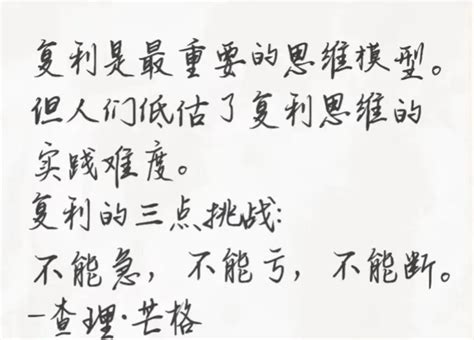 复利是最重要的思维模型。
但人们低估了复利思维的
实践难度。
复利的三点挑战:
不能急，不能亏，不能断。
-查理·芒格